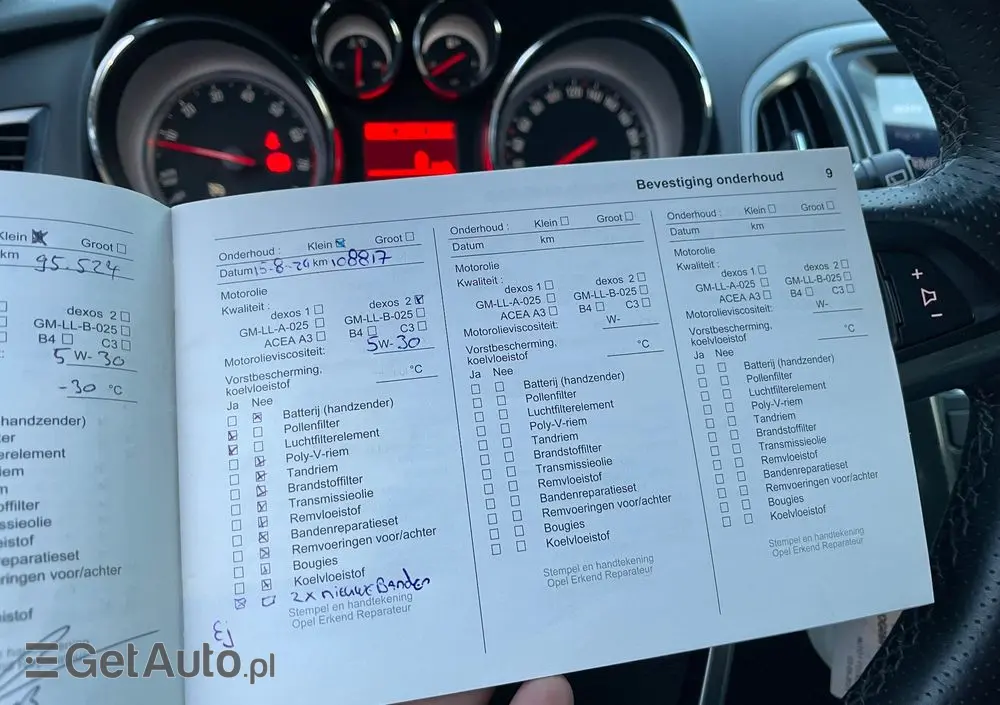 Klein Groot
km 95.524
dexos 2
GM-LL-B-025
B4 C3
5 W- 30
-30 °C
handzender)
erelement
offilter
ssieolie
eparatieset
ringen voor/achter
istof
Bevestiging onderhoud 9
Onderhoud : Klein Groot
Datum 15-8-24 km 108817
Motorolie
Kwaliteit : dexos 1 dexos 2
GM-LL-A-025 GM-LL-B-025
ACEA A3 B4 C3
Motorolieviscositeit: 5W-30
Vorstbescherming,
koelvloeistof °C
Ja Nee
Batterij (handzender)
Pollenfilter
Luchtfilterelement
Poly-V-riem
Tandriem
Brandstoffilter
Transmissieolie
Remvloeistof
Bandenreparatieset
Remvoeringen voor/achter
Bougies
Koelvloeistof
2x nieuwe Banden
Stempel en handtekening
Opel Erkend Reparateur
Onderhoud : Klein Groot
Datum km
Motorolie
Kwaliteit : dexos 1 dexos 2
GM-LL-A-025 GM-LL-B-025
ACEA A3 B4 C3
Motorolieviscositeit: W-
Vorstbescherming,
koelvloeistof °C
Ja Nee
Batterij (handzender)
Pollenfilter
Luchtfilterelement
Poly-V-riem
Tandriem
Brandstoffilter
Transmissieolie
Remvloeistof
Bandenreparatieset
Remvoeringen voor/achter
Bougies
Koelvloeistof
Stempel en handtekening
Opel Erkend Reparateur
Onderhoud : Klein Groot
Datum km
Motorolie
Kwaliteit : dexos 1 dexos 2
GM-LL-A-025 GM-LL-B-025
ACEA A3 B4 C3
Motorolieviscositeit: W-
Vorstbescherming,
koelvloeistof °C
Ja Nee
Batterij (handzender)
Pollenfilter
Luchtfilterelement
Poly-V-riem
Tandriem
Brandstoffilter
Transmissieolie
Remvloeistof
Bandenreparatieset
Remvoeringen voor/achter
Bougies
Koelvloeistof
Stempel en handtekening
Opel Erkend Reparateur
GetAuto.pl